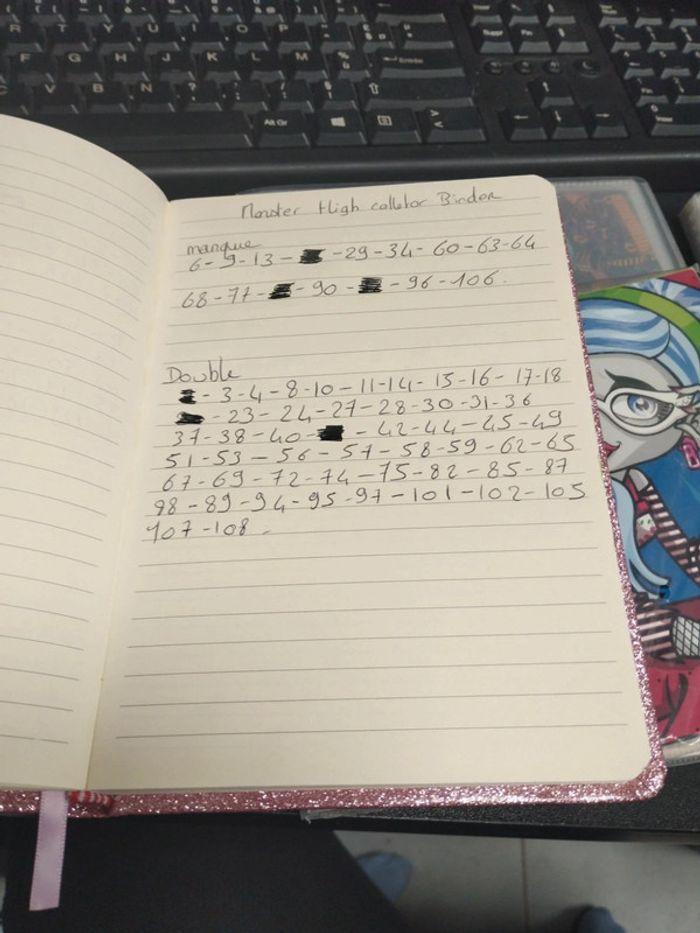 Monster High collector Binder
manque
6-9-13- -29-34-60-63-64
68-77- -90- -96-106.
Double
-3-4-8-10-11-14-15-16-17-18
-23-24-27-28-30-31-36
37-38-40- -42-44-45-49
51-53-56-57-58-59-62-65
67-69-72-74-75-82-85-87
98-89-94-95-97-101-102-105
107-108.